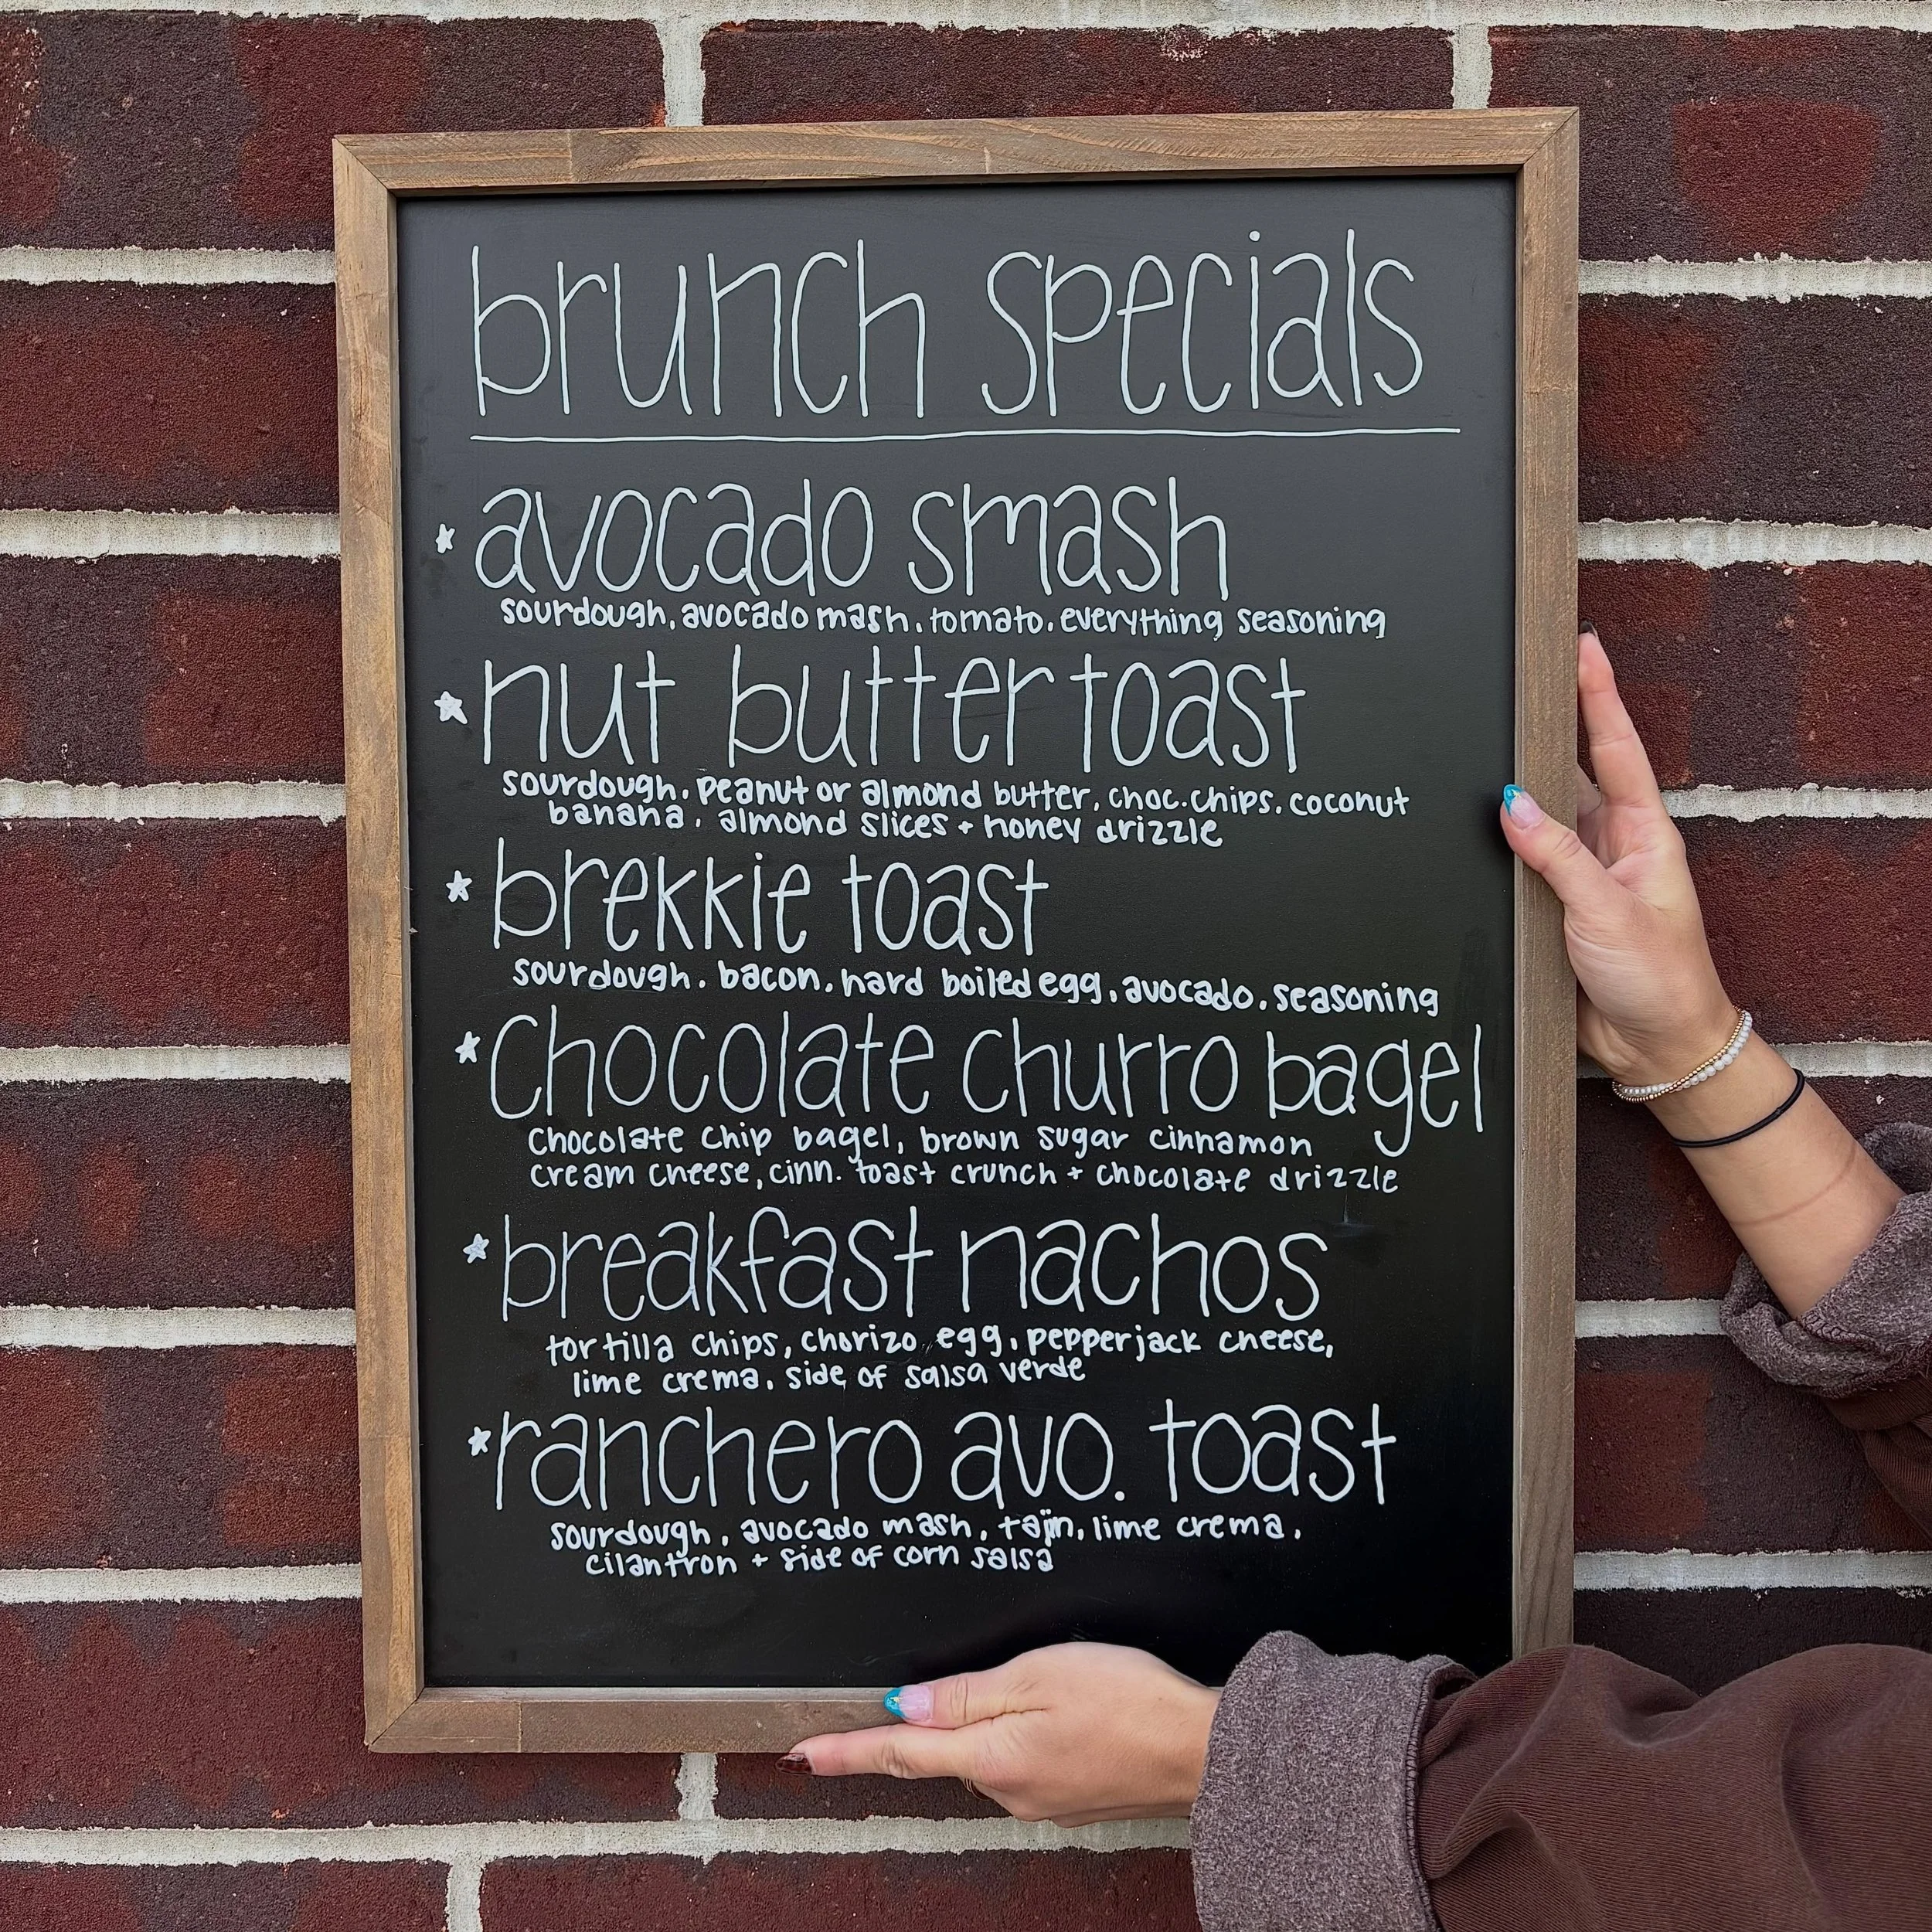 brunch specials
avocado smash
sourdough, avocado mash, tomato, everything seasoning
nut butter toast
sourdough, peanut or almond butter, choc. chips, coconut
banana, almond slices + honey drizzle
brekkie toast
sourdough, bacon, hard boiled egg, avocado, seasoning
Chocolate churro bagel
chocolate chip bagel, brown sugar cinnamon
cream cheese, cinn. toast crunch + chocolate drizzle
breakfast nachos
tortilla chips, chorizo, egg, pepperjack cheese,
lime crema, side of salsa verde
ranchero avo. toast
sourdough, avocado mash, tajin, lime crema,
cilantron + side of corn salsa